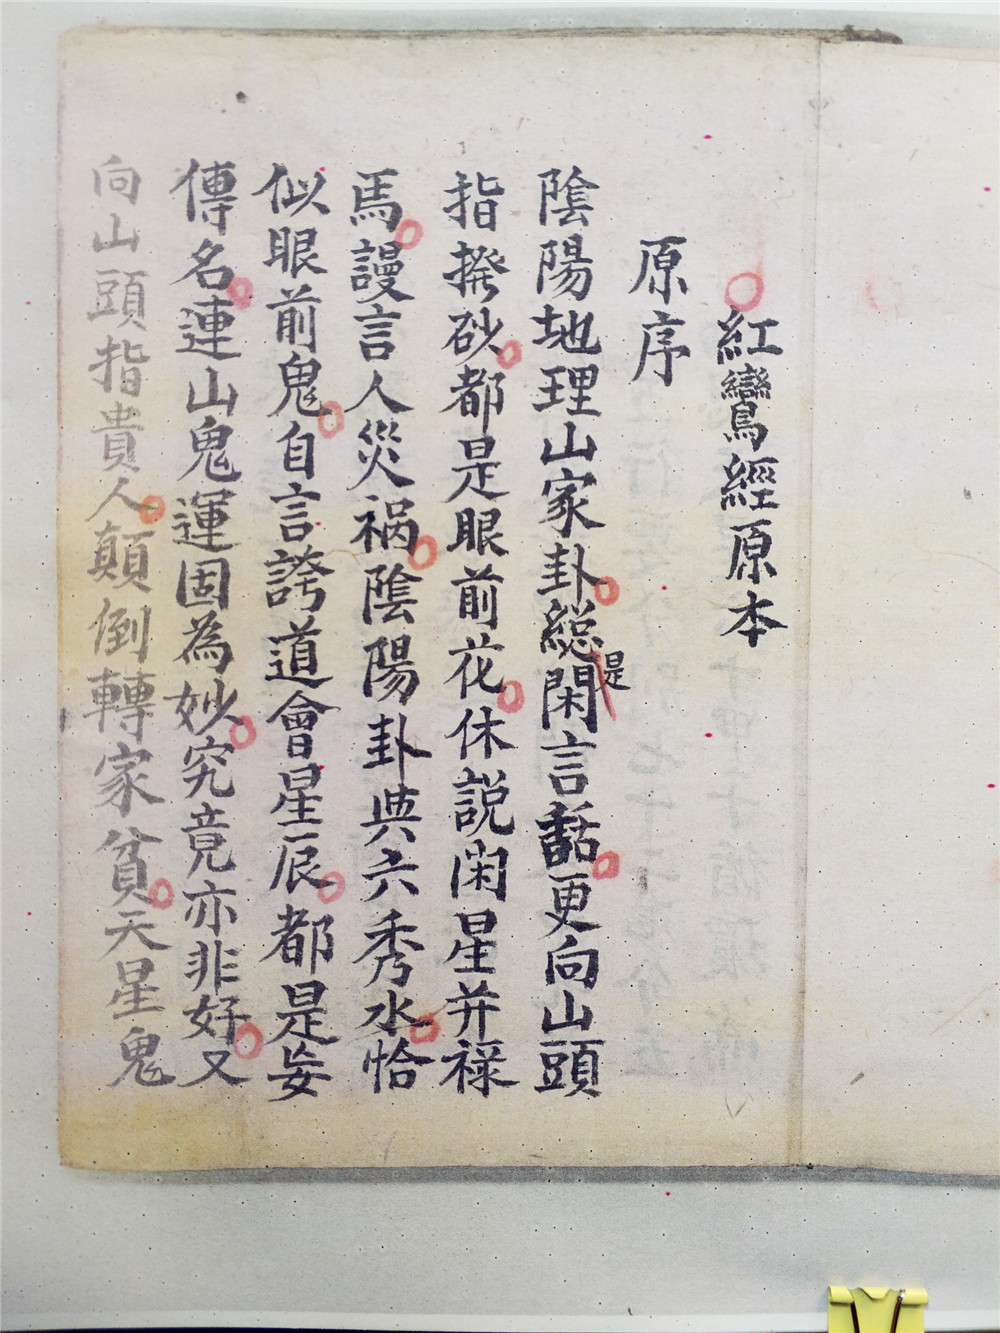 紅鸞經原本
原序
陰陽地理山家卦總是閑言話更向山頭
指撥砂都是眼前花休説闲星并禄
馬謾言人災祸陰陽卦典六秀水恰
似眼前鬼自言誇道會星辰都是妄
傳名連山鬼運固為妙究竟亦非好又
向山頭指貴人顛倒轉家貧天星鬼